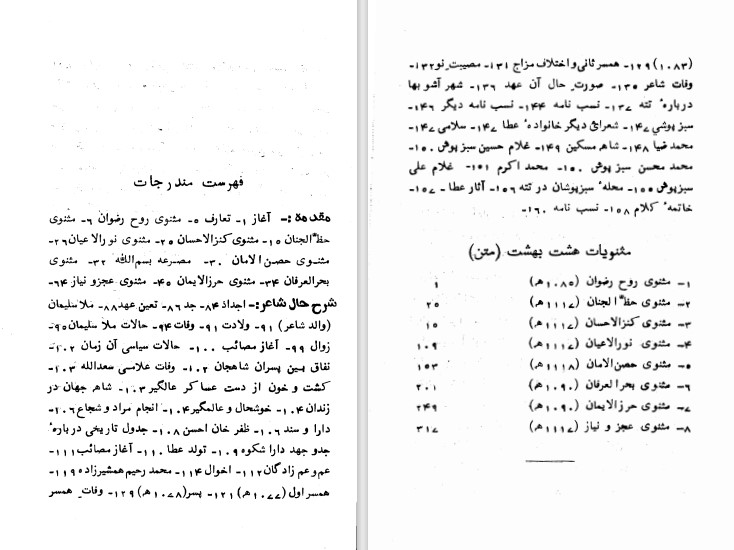 فهرست مندرجات
مقدمه:- آغاز ۱- تعارف ۵- مثنوی روح رضوان ۶- مثنوی
حظ الجنان ۱۵- مثنوی کنزالاحسان ۲۵- مثنوی نورالاعیان ۲۶-
مثنوی حصن الامان ۳۰- مصرعه بسم‌الله ۳۲- مثنوی
بحرالعرفان ۳۴- مثنوی حرزالایمان ۴۵- مثنوی عجزو نیاز ۶۴-
شرح حال شاعر:- اجداد ۸۴- جد ۸۶- تعین عهد ۸۸- ملا سلیمان
(والد شاعر) ۹۱- ولادت ۹۱- وفات ۹۴- حالات ملا سلیمان ۹۵-
زوال ۹۹- آغاز مصائب ۱۰۰- حالات سیاسی آن زمان ۱۰۲-
نفاق بین پسران شاهجان ۱۰۲- وفات علامی سعدالله ۱۰۳-
کشت و خون از دست عساکر عالگیر ۱۰۳- شاه جهان در
زندان ۱۰۴- خوشحال و عالمگیر ۱۰۴- انجام مراد و شجاع ۱۰۶-
دارا و سند ۱۰۶- ظفر خان احسن ۱۰۸- جدول تاریخی درباره ٔ
جدو جهد دارا شکوه ۱۰۹- تولد عطا ۱۱۰- آغاز مصائب ۱۱۱-
عم و عم زادگان ۱۱۲- اخوال ۱۱۴- محمد رحیم همشیرزاده ۱۱۹-
همسر اول (۱۰۷۷ه) ۱۲۱- پسر (۱۰۷۸ه) ۱۲۹- وفات همسر
(۱۰۸۳) ۱۲۹- همسر ثانی و اختلاف مزاج ۱۳۱- مصیبت نو ۱۳۲-
وفات شاعر ۱۳۵- صورت حال آن عهد ۱۳۶- شهر آشوبها
درباره ٔ تته ۱۳۷- نسب نامه ۱۴۴- نسب نامه دیگر ۱۴۶-
سبز پوشی ۱۴۷- شعرای دیگر خانواده ٔ عطا ۱۴۷- سلامی ۱۴۷-
محمد ضیا ۱۴۸- شاهر مسکین ۱۴۹- غلام حسین سبز پوش ۱۵۰-
محمد محسن سبز پوش ۱۵۰- محمد اکرم ۱۵۱- غلام علی
سبز پوش ۱۵۵- محله ٔ سبزپوشان در تته ۱۵۶- آثار عطا ۱۵۷-
خاتمه ٔ کلام ۱۵۸- نسب نامه ۱۶۰-
مثنویات هشت بهشت (متن)
۱- مثنوی روح رضوان (۱۰۸۵ه) ۱
۲- مثنوی حظ الجنان (۱۱۱۷ه) ۲۵
۳- مثنوی کنزالاحسان (۱۱۱۷ه) ۱۵
۴- مثنوی نورالاعیان (۱۱۱۷ه) ۱۰۹
۵- مثنوی حصن الامان (۱۱۱۸ه) ۱۵۳
۶- مثنوی بحرالعرفان (۱۰۹۰ه) ۲۰۱
۷- مثنوی حرزالایمان (۱۰۹۰ه) ۲۴۹
۸- مثنوی عجز و نیاز (۱۱۱۷ه) ۳۱۷